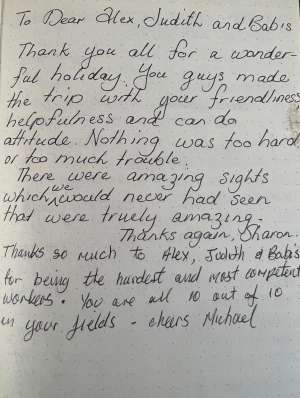 To Dear Alex, Judith and Babis
Thank you all for a wonder-
ful holiday. You guys made
the trip with your friendliness
helpfulness and can do
attitude. Nothing was too hard
or too much trouble.
There were amazing sights
which we would never had seen
that were truely amazing.
Thanks again, Sharon.
Thanks so much to Alex, Judith & Babis
for being the hardest and most competent
workers. You are all 10 out of 10
in your fields - cheers Michael